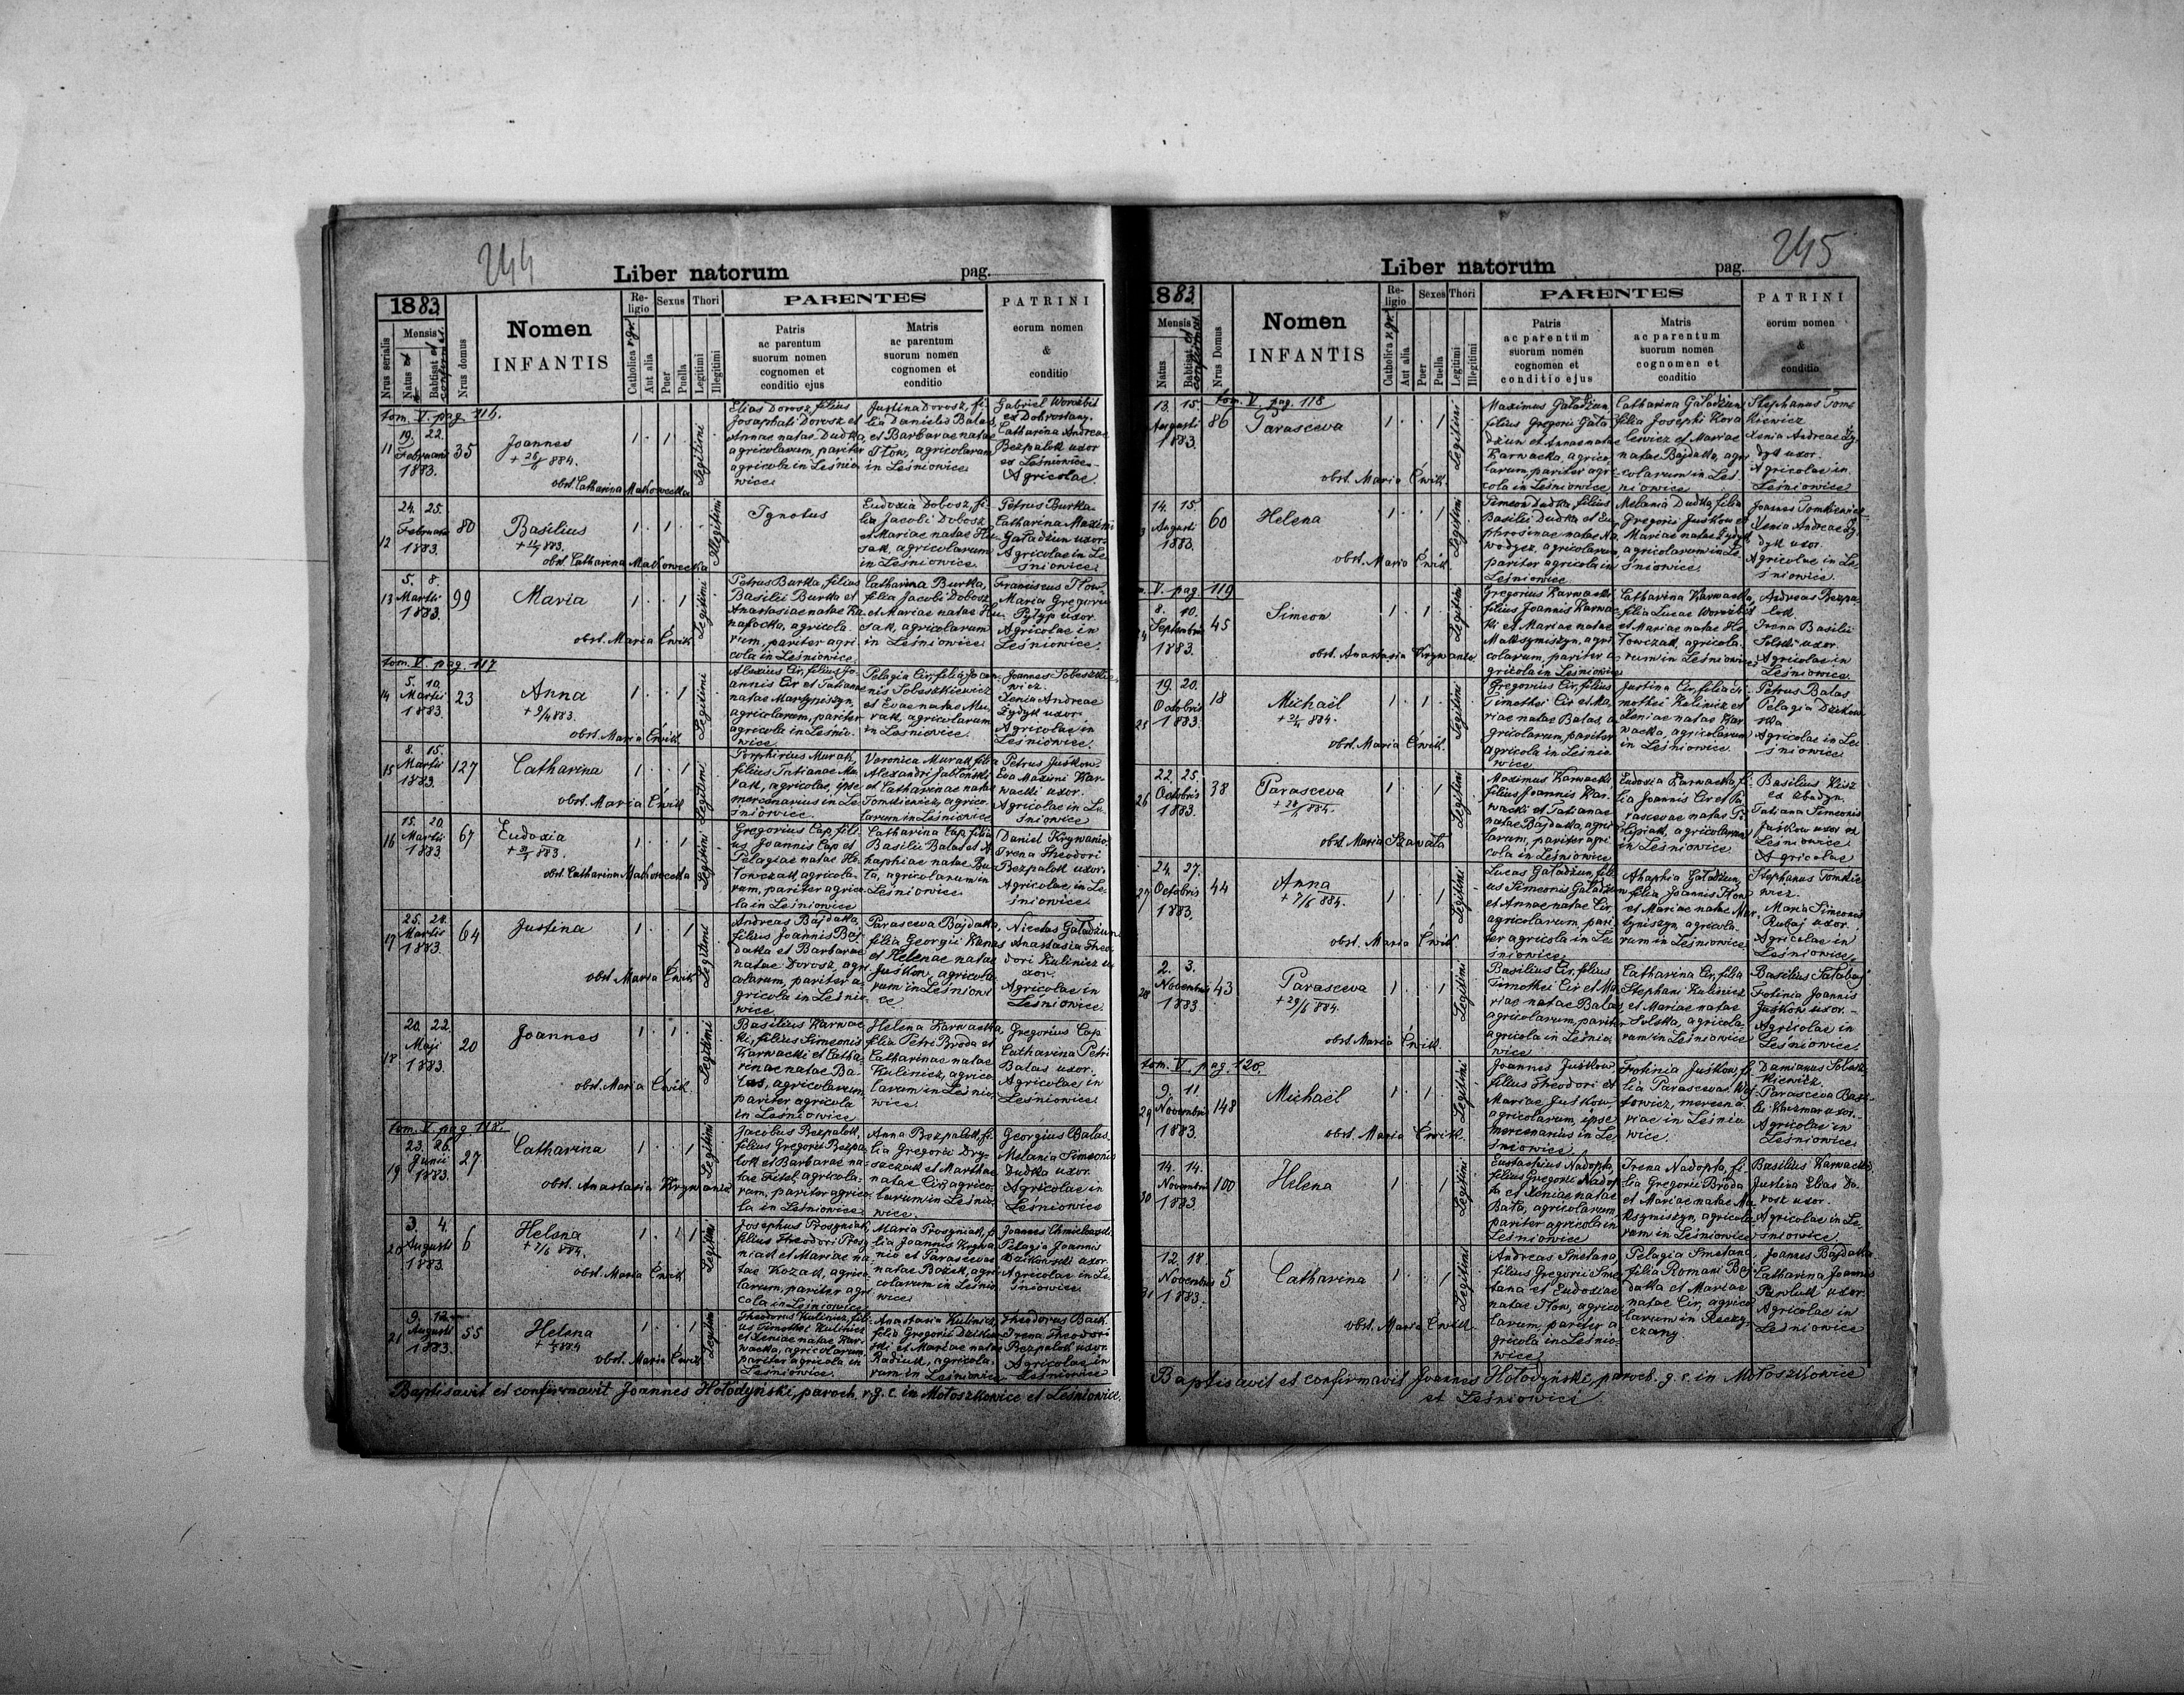 244
Liber natorum pag.
1883
Nrus serialis
Mensis
Natus
Babtisat et confirmat.
Nrus domus
Nomen
INFANTIS
Religio
Catholica r. gr.
Aut alia
Sexus
Puer
Puella
Thori
Legitimi
Illegitimi
PARENTES
Patris
ac parentum
suorum nomen
cognomen et
conditio ejus
Matris
ac parentum
suorum nomen
cognomen et
conditio
PATRINI
eorum nomen
&
conditio
11
19. 22.
Februarii
1883.
35
Joannes
obst. Catharina Makowecka
Legitimi
Elias Dorosz, filius
Josaphati Dorosz et
Annae natae Dudka,
agricolarum, pariter
agricola in Leśnio
wice
Justina Dorosz, fi-
lia Danielis Balas
et Barbarae natae
Tłow, agricolarum
in Leśniowice
Gabriel Worobit
ex Dobrostany.
Catharina Andreae
Bezpalok uxor
ex Leśniowice
Agricolae
12
24. 25.
Februarii
1883.
80
Basilius
obst. Catharina Makowecka
Illegitimi
Ignotus
Eudoxia Dobosz, fi-
lia Jacobi Dobosz
et Mariae natae Hu
sak, agricolarum
in Leśniowice.
Petrus Burka
Catharina Maximi
Gaładżun uxor
Agricolae in Le
śniowice.
13
5. 8.
Martii
1883.
99
Maria
obst. Maria Ćwik
Legitimi
Petrus Burka, filius
Basilii Burka et
Anastasiae natae Ka
natocka, agricola
rum, pariter agri
cola in Leśniowice.
Catharina Burka,
filia Jacobi Dobosz
et Mariae natae Hu
sak, agricolarum
in Leśniowice
Franciscus Tłow
Maria Gregorii
Pyłyp uxor
Agricolae in
Leśniowice.
tom. V. pag. 117
14
5. 10.
Martii
1883.
23
Anna
+ 9/4 883.
obst. Maria Ćwik.
Legitimi
Alexius Cir, filius Jo
annis Cir et Tatianae
natae Martyniszyn,
agricolarum, pariter
agricola in Leśnio
wice.
Pelagia Cir, filia Joan
nis Soleszkiewicz
et Evae natae Mu
rak, agricolarum
in Leśniowice.
Joannes Soleszkie
wicz.
Xenia Andreae
Żydyk uxor
Agricolae in
Leśniowice.
15
8. 15.
Martii
1883.
127
Catharina
obst. Maria Ćwik
Legitimi
Porphirius Murak,
filius Tatianae Mu
rak, agricolae, ipse
mercenarius in Le
śniowice.
Veronica Murak filia
Alexandri Jabłoński
et Catharinae natae
Tomkiewicz, agrico
larum in Leśniowice
Petrus Juśkow
Eva Maximi Kar
wacki uxor.
Agricolae in Le
śniowice
16
15. 20.
Martii
1883.
67
Eudoxia
obst. Catharina Makowecka
Legitimi
Gregorius Cap, fili-
us Joannis Cap et
Pelagiae natae Ho
łowczak, agricola-
rum, pariter agrico
la in Leśniowice
Catharina Cap, filia
Basilii Balas et A
haphiae natae Bu
ła, agricolarum in
Leśniowice.
Daniel Krywanio
Irena Theodori
Bezpalok uxor.
Agricolae in Le
śniowice
17
25. 28.
Martii
1883.
64
Justina
obst. Maria Ćwik
Legitimi
Andreas Bajdałka,
filius Joannis Baj
dałka et Barbarae
natae Dorosz, agri
colarum, pariter a-
gricola in Leśnio
wice
Parasceva Bajdałka,
filia Georgii Kanas
et Helenae natae
Juśkow, agricola
rum in Leśniowi
ce
Nicetas Gaładżun
Anastasia Theo
dori Kulinicz u
xor.
Agricolae in
Leśniowice.
18
20. 22.
Maji
1883.
20
Joannes
obst. Maria Ćwik.
Legitimi
Basilius Karwac
ki, filius Simeonis
Karwacki et Catha
rinae natae Ba-
las, agricolarum,
pariter agricola
in Leśniowice
Helena Karwacka,
filia Petri Broda et
Catharinae natae
Kulinicz, agrico
larum in Leśnio
wice.
Gregorius Cap
Catharina Petri
Balas uxor.
Agricolae in
Leśniowice.
tom. V. pag. 118.
19
23. 26.
Junii
1883.
27
Catharina
obst. Anastasia Krywania
Legitimi
Jacobus Bezpalok,
filius Gregorii Bezpa
lok et Barbarae na
tae Fitel, agricola-
rum, pariter agrico
la in Leśniowice.
Anna Bezpalok, fi-
lia Gregorii Dry-
saczak et Marthae
natae Cir, agrico
larum in Leśnio
wice.
Georgius Balas.
Melania Simeonis
Dudka uxor.
Agricolae in
Leśniowice
20
3. 4.
Augusti
1883.
6
Helena
obst. Maria Ćwik
Legitimi
Josephus Proszniak,
filius Theodori Prosz
niak et Mariae na
tae Kozak, agrico
larum, pariter agri
cola in Leśniowice
Maria Proszniak, fi
lia Joannis Krywa
nio et Parascevae
natae Bożek, agri
colarum in Leśnio
wice.
Joannes Chmielowski
Pelagia Joannis
Dzikowski uxor
Agricolae in Le
śniowice.
21
9. 12.
Augusti
1883.
55
Helena
obst. Maria Ćwik.
Legitimi
Theodorus Kulinicz, fili-
us Timothei Kulinicz
et Xeniae natae Kar
wacka, agricolarum,
pariter agricola in
Leśniowice.
Anastasia Kulinicz,
filia Gregorii Dzikow
ski et Mariae natae
Radiuk, agricola-
rum in Leśniowice
Theodorus Back
Irena Theodori
Bezpalok uxor
Agricolae in
Leśniowice
Baptisavit et confirmavit Joannes Hołodyński, paroch. r. g. c. in Mołoszkowice et Leśniowice.
245
Liber natorum pag.
1883.
Mensis
Natus
Babtisat et confirmat.
Nrus Domus
Nomen
INFANTIS
Religio
Catholica r. gr.
Aut alia
Sexes
Puer
Puella
Thori
Legitimi
Illegitimi
PARENTES
Patris
ac parentum
suorum nomen
cognomen et
conditio ejus
Matris
ac parentum
suorum nomen
cognomen et
conditio
PATRINI
eorum nomen
&
conditio
tom. V. pag. 118
13. 15.
Augusti
1883.
86
Parasceva
obst. Maria Ćwik.
Legitimi
Maximus Gaładżun,
filius Gregorii Gała
dżun et Annae natae
Karwacka, agrico
larum, pariter agri
cola in Leśniowice
Catharina Gaładżun
filia Josephi Kowa
lewicz et Mariae
natae Bajdałka, agri
colarum in Leś
niowice
Stephanus Tom
kiewicz
Xenia Andreae Ży-
dyk uxor.
Agricolae in
Leśniowice
14. 15.
Augusti
1883.
60
Helena
obst. Maria Ćwik
Legitimi
Simeon Dudka, filius
Basilii Dudka et Eu
phrosinae natae Na
wodycz, agricolarum,
pariter agricola in
Leśniowice
Melania Dudka, filia
Gregorii Juśkow et
Mariae natae Żydyk
agricolarum in Le
śniowice.
Joannes Tomkiewicz
Xenia Andreae Ży
dyk uxor.
Agricolae in Le
śniowice.
V. pag. 119
8. 10.
Septembris
1883.
45
Simeon
obst. Anastasia Krywanio.
Legitimi
Gregorius Karwacki
filius Joannis Karwac
ki et Mariae natae
Maksymiszyn, agri
colarum, pariter a-
gricola in Leśniowice
Catharina Karwacka,
filia Lucae Worobit
et Mariae natae Ho
łowczak, agricola
rum in Leśniowice
Andreas Bezpa-
lok.
Irena Basilii
Solski uxor.
Agricolae in
Leśniowice.
25
19. 20.
Octobris
1883.
18
Michaël
obst. Maria Ćwik.
Legitimi
Gregorius Cir, filius
Timothei Cir et Ma
riae natae Balas, a
gricolarum, pariter
agricola in Leśnio
wice.
Justina Cir, filia Ti
mothei Kulinicz et
Xeniae natae Kar
wacka, agricolarum
in Leśniowice
Petrus Balas
Pelagia Dzikow
ska
Agricolae in Le
śniowice
26
22. 25.
Octobris
1883.
38
Parasceva
obst. Maria Szawała
Legitimi
Maximus Karwacki
filius Joannis Kar
wacki et Tatianae
natae Bajdałka, agri
larum, pariter agri
cola in Leśniowice
Eudoxia Karwacka, fi
lia Joannis Cir et Pa
rascevae natae Po
lipiak, agricolarum
in Leśniowice.
Basilius Kisz
ex Obadyn.
Tatiana Simeonis
Juśkow uxor ex
Leśniowice
Agricolae
27
24. 27.
Octobris
1883.
44
Anna
+ 7/6 884.
obst. Maria Ćwik.
Legitimi
Lucas Gaładżun, fili-
us Simeonis Gaładżun
et Annae natae Cir
agricolarum, pari
ter agricola in Le
śniowice
Ahaphia Gaładżun,
filia Joannis Tłow
et Mariae natae Mar
tyniszyn, agricola-
rum in Leśniowice
Stephanus Tomkie
wicz.
Maria Simeonis
Rubaj uxor.
Agricolae in
Leśniowice
28
2. 3.
Novembris
1883
43
Parasceva
+ 29/6 884.
obst. Maria Ćwik.
Legitimi
Basilius Cir, filius
Timothei Cir et Ma
riae natae Balas
agricolarum, pariter
agricola in Leśnio
wice
Catharina Cir, filia
Stephani Kulinicz
et Mariae natae
Solska, agricola-
rum in Leśniowice
Basilius Sałabaj
Fotinia Joannis
Juśkow uxor.
Agricolae in
Leśniowice.
tom. V. pag. 120.
29
9. 11.
Novembris
1883.
148
Michaël
obst. Maria Ćwik.
Legitimi
Joannes Juśkow,
filius Theodori et
Mariae Juśkow,
agricolarum, ipse
mercenarius in Le
śniowice
Fotinia Juśkow, fi
lia Parascevae Woj
towicz, mercena
riae in Leśnio
wice.
Damianus Solesz
kiewicz.
Parasceva Basi-
lii Kuzmar uxor.
Agricolae in
Leśniowice
30
14. 14.
Novembris
1883.
100
Helena
Legitimi
Eustachius Nadopta,
filius Gregorii Nadop
ta et Xeniae natae
Bała, agricolarum,
pariter agricola in
Leśniowice
Irena Nadopta, fi-
lia Gregorii Broda
et Mariae natae Ma
ksymiszyn, agricola
rum in Leśniowice
Basilius Karwacki.
Justina Elias Do.
rosz uxor.
Agricolae in Le-
śniowice.
31
12. 18.
Novembris
1883.
5
Catharina
obst. Maria Ćwik
Legitimi
Andreas Smetana
filius Gregorii Sme
tana et Eudoxiae
natae Tłow, agrico
larum, pariter a
gricola in Leśnio
wice
Pelagia Smetana,
filia Romani Baj
dałka et Mariae
natae Cir, agrico
larum in Reczy
czany
Joannes Bajdałka.
Catharina Joannis
Pawluk uxor.
Agricolae in
Leśniowice
Baptisavit et confirmavit Joannes Hołodyński, paroch. g. c. in Mołoszkowice
et Leśniowice.